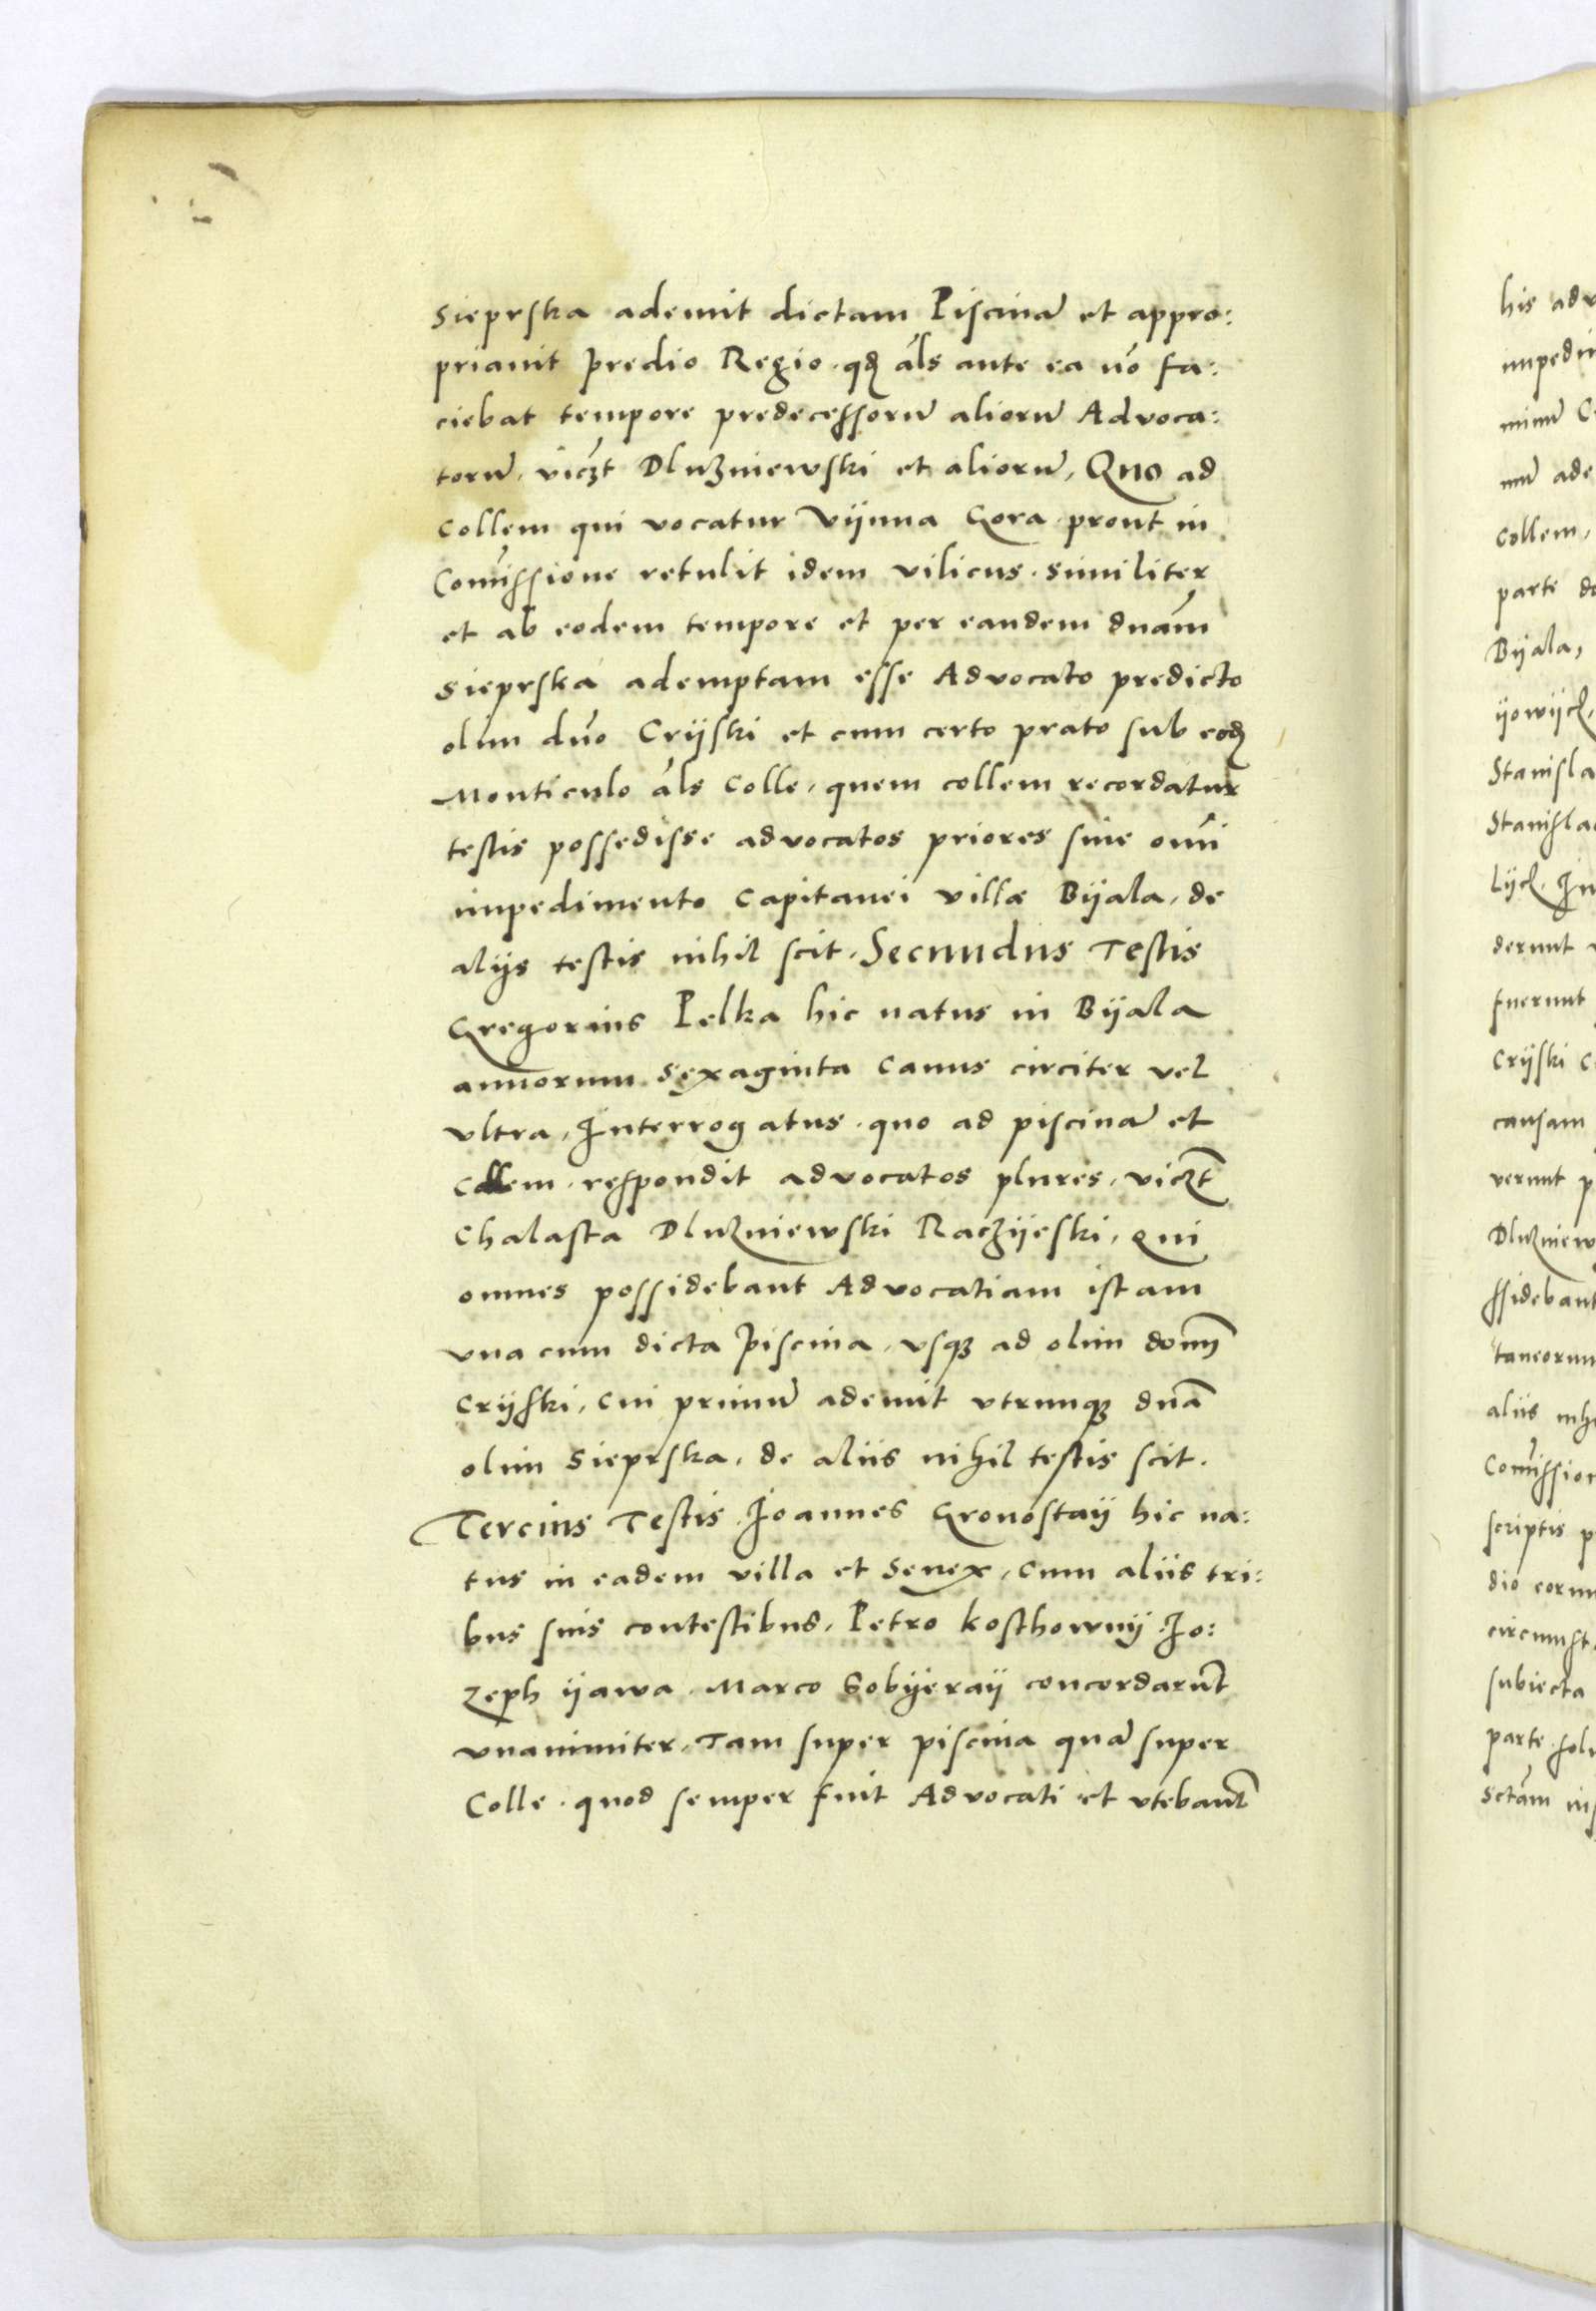 Sieprska ademit dictam Piscinā et appro:
priauit predio Regio. qđ āls ante ea nō fa:
ciebat tempore predecessorū aliorū Advoca:
torū, viczt Dluzniewski et aliorū, Quo ad
collem qui vocatur Vijnna Gora prout in
Comīssione retulit idem vilicus. similiter
et ab eodem tempore et per eandem dnām
Sieprska ademptam esse Advocato predicto
olim dno Crijski et cum certo prato sub eođ
Monticulo āls Colle, quem collem recordatur
testis possedisse advocatos priores sine omī
impedimento Capitanei villæ Bijala, de
alijs testis nihil scit. Secundus Testis
Gregorius Pelka hic natus in Bijala
annorum sexaginta canus circiter vel
vltra, Interrogatus. quo ad piscinā et
collem. respondit advocatos plures, viczt
Chalasta Dluzniewski Raczijeski, qui
omnes possidebant Advocatiam istam
vna cum dicta Piscina, vsqȝ ad olim domī
Crijski, cui primū ademit vtrunqȝ dnā
olim Sieprska, de aliis nihil testis scit.
Tercius Testis Joannes Gronostaij hic na:
tus in eadem villa et Senex, cum aliis tri:
bus suis contestibus, Petro Kosthownij Jo:
zeph ijawa Marco Sobijeraij concordarūt
vnanimiter, Tam super piscina quā super
Colle. quod semper fuit Advocati et vtebanť
his
impedi
collem,
parte
Bijala,
Stanisla
Stanisla
derunt
fuerunt
Crijski
causam
verunt
Dluzniew
ssidebant
taneorum
aliis
Comīssion
scriptis
dio eorum
subiecta
parte